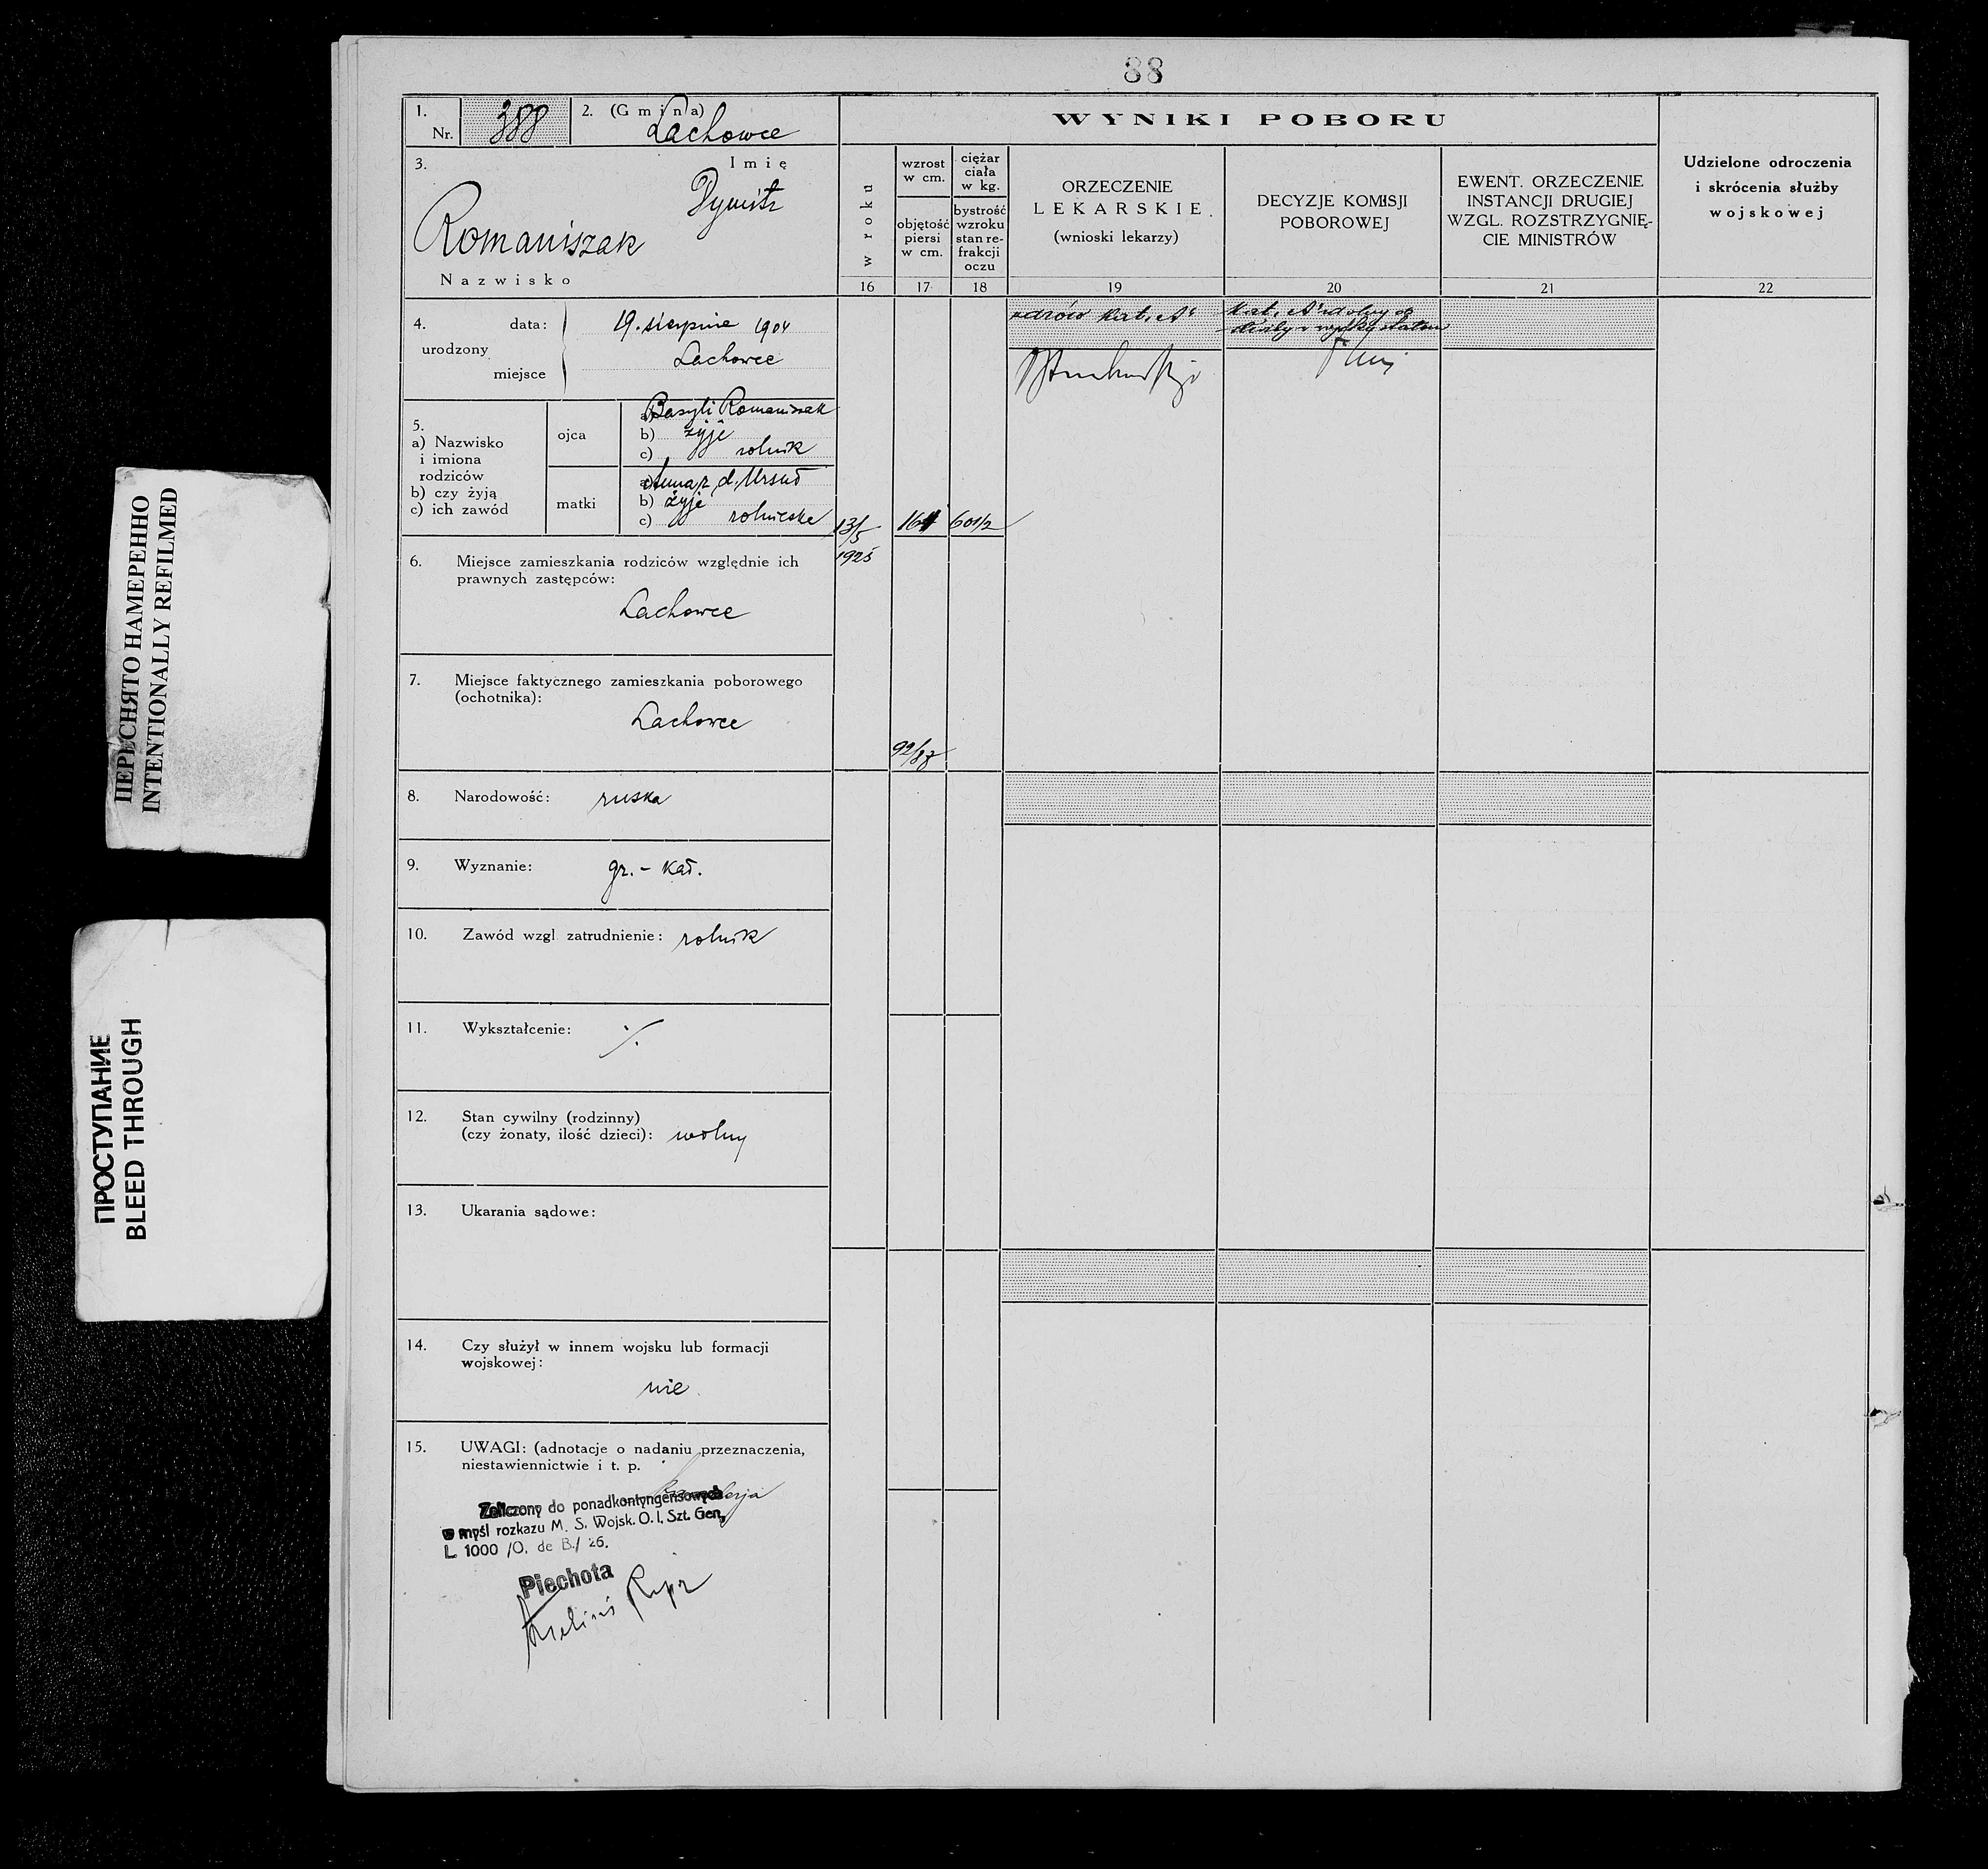 88
1.
Nr. 388
2. (Gmina)
Lachowce
3.
Imię
Dymitr
Romaniszak
Nazwisko
4.
urodzony
data: 19. sierpnia 1904
miejsce Lachowce
5.
a) Nazwisko
i imiona
rodziców
b) czy żyją
c) ich zawód
ojca
a) Basyli Romaniszak
b) żyje
c) rolnik
matki
a) Anna z d. Ursuł
b) żyje
c) rolniczka
6. Miejsce zamieszkania rodziców względnie ich
prawnych zastępców:
Lachowce
7. Miejsce faktycznego zamieszkania poborowego
(ochotnika):
Lachowce
8. Narodowość: ruska
9. Wyznanie: gr. - kat.
10. Zawód wzgl. zatrudnienie: rolnik
11. Wykształcenie: ./.
12. Stan cywilny (rodzinny)
(czy żonaty, ilość dzieci): wolny
13. Ukarania sądowe:
14. Czy służył w innem wojsku lub formacji
wojskowej:
nie
15. UWAGI: (adnotacje o nadaniu przeznaczenia,
niestawiennictwie i t. p.
Zaliczony do ponadkontyngensowych
w myśl rozkazu M. S. Wojsk. O. I. Szt. Gen,
L. 1000 /O. de B./ 26.
Piechota
WYNIKI POBORU
w roku
16
wzrost
w cm.
objętość
piersi
w cm.
17
ciężar
ciała
w kg.
bystrość
wzroku
stan re-
frakcji
oczu
18
ORZECZENIE
LEKARSKIE.
(wnioski lekarzy)
19
DECYZJE KOMISJI
POBOROWEJ
20
EWENT. ORZECZENIE
INSTANCJI DRUGIEJ
WZGL. ROZSTRZYGNIĘ-
CIE MINISTRÓW
21
Udzielone odroczenia
i skrócenia służby
wojskowej
22
zdrów kat. „A"
kat. „A" zdolny do
13/5
1925
164
60 1/2
92/87
ПЕРЕСНЯТО НАМЕРЕННО
INTENTIONALLY REFILMED
ПРОСТУПАНИЕ
BLEED THROUGH